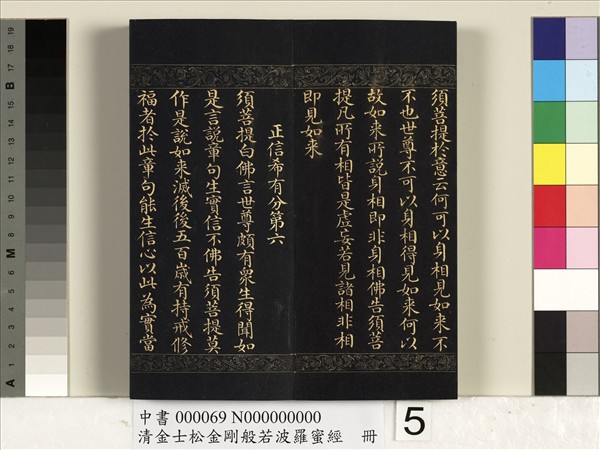 須菩提於意云何可以身相見如來不
不也世尊不可以身相得見如來何以
故如來所說身相即非身相佛告須菩
提凡所有相皆是虛妄若見諸相非相
即見如來
正信希有分第六
須菩提白佛言世尊頗有眾生得聞如
是言說章句生實信不佛告須菩提莫
作是說如來滅後後五百歲有持戒修
福者於此章句能生信心以此為實當
中書 000069 N000000000
清金士松金剛般若波羅蜜經 冊
5
A 1 2 3 4 5 6 M 8 9 10 11 12 13 14 15 B 17 18 19